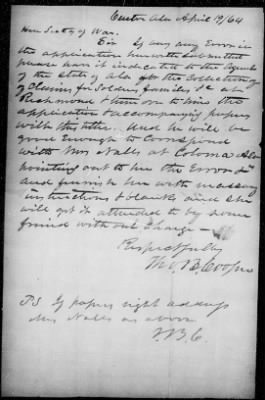 Centre Ala April 19/64
Hon Secty of War.
Sir If any Error in
the application herewith submitted
please have it indicated to the Agents
of the State of Ala for the Collection
of Claims for Soldiers families &c at
Richmond & turn over to him the
application & accompanying papers
with this letter. And he will be
good enough to Correspond
with Mrs Nalls at Coloma Ala
pointing out to her the Errors &c
and furnish her with necessary
instructions & blanks and she
will get it attended to by some
friend without Charge —
Respectfully
Tho. B. Cooper
PS If papers right address
Mrs Nalls as above
T.B.C.